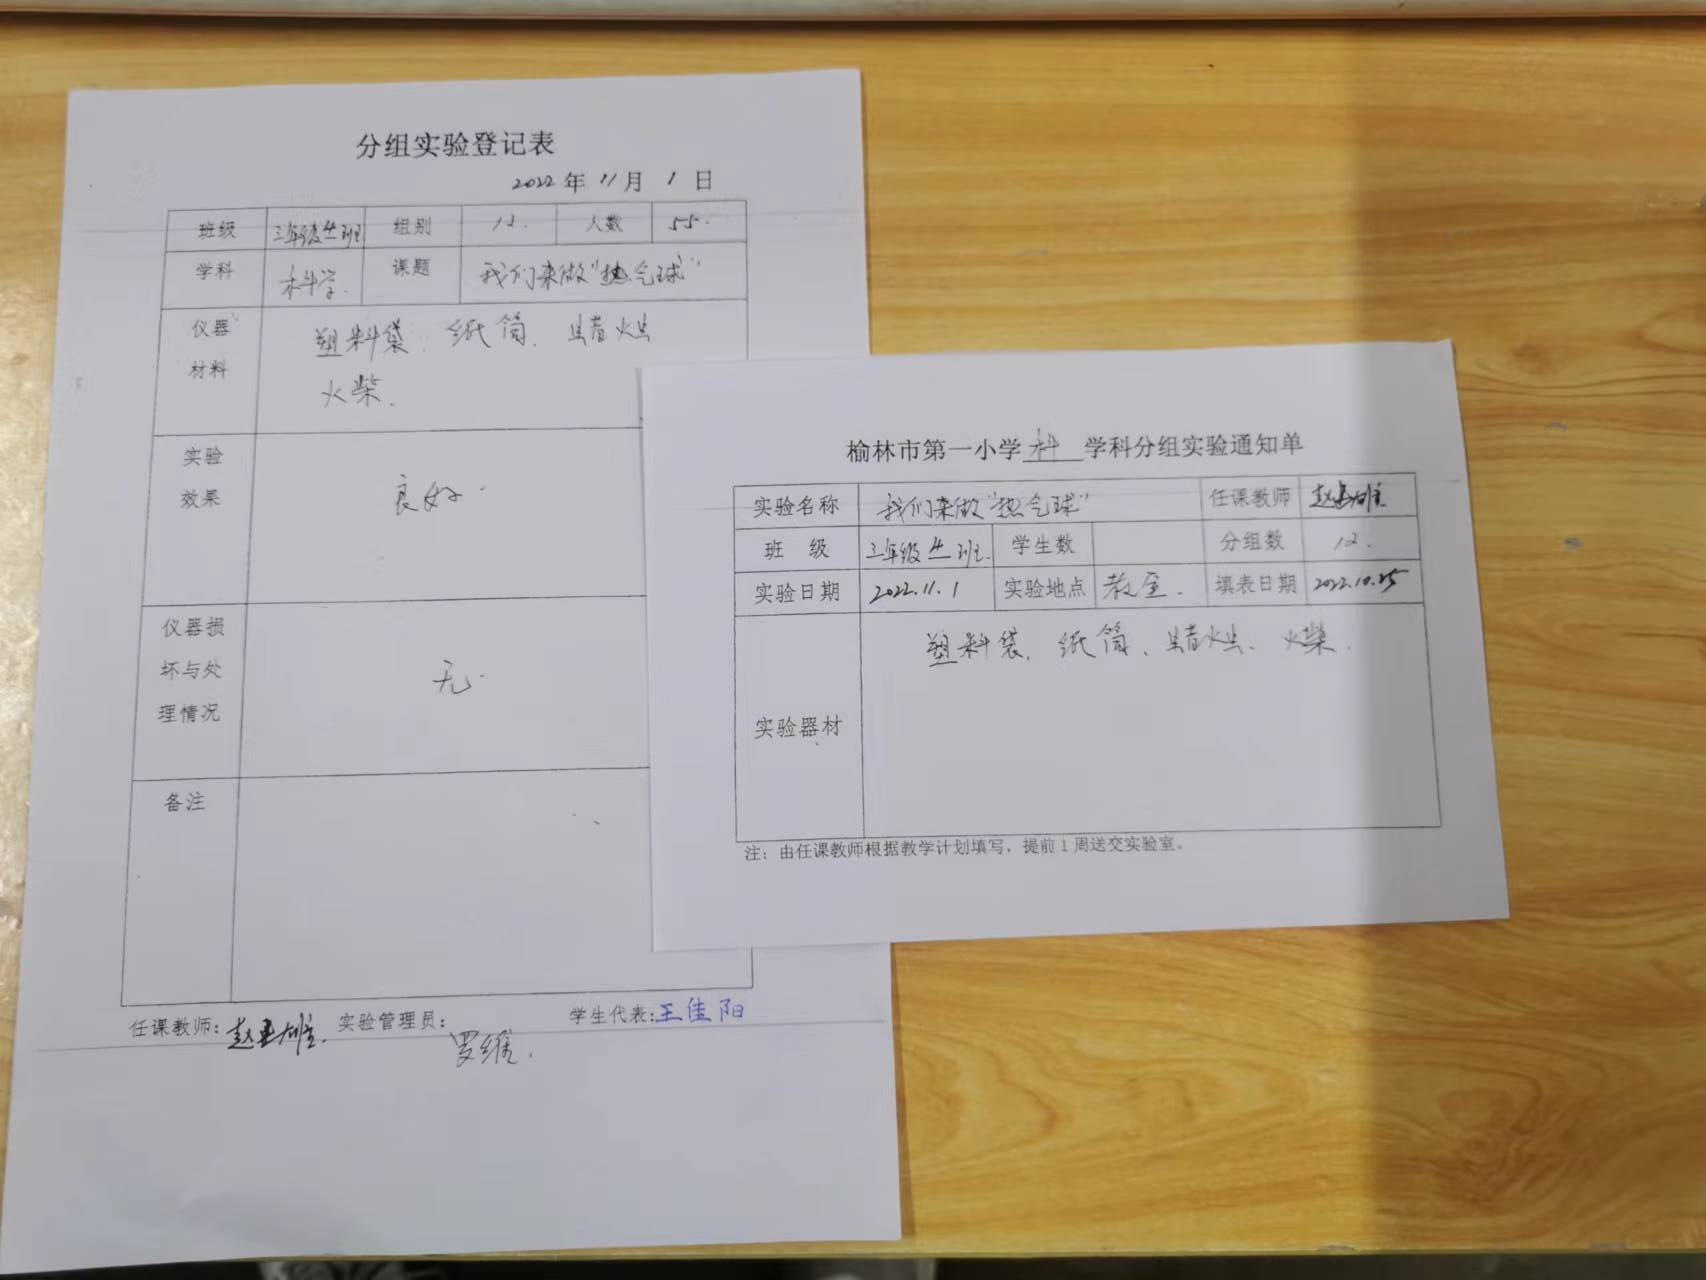 分组实验登记表
2022年 11月 1日
班级 三年级 班 组别 12. 人数 55.
学科 科学. 课题 我们来做“热气球”
仪器材料 塑料袋、纸筒、蜡烛
火柴、
实验效果 良好.
仪器损坏与处理情况 无.
备注
任课教师: 赵 雄. 实验管理员: 罗维. 学生代表:王佳阳
榆林市第一小学 科 学科分组实验通知单
实验名称 我们来做“热气球” 任课教师 赵 雄
班 级 三年级 班. 学生数 分组数 12.
实验日期 2022.11.1 实验地点 教室. 填表日期 2022.10.25
实验器材 塑料袋、纸筒、蜡烛、火柴.
注：由任课教师根据教学计划填写，提前1周送交实验室。